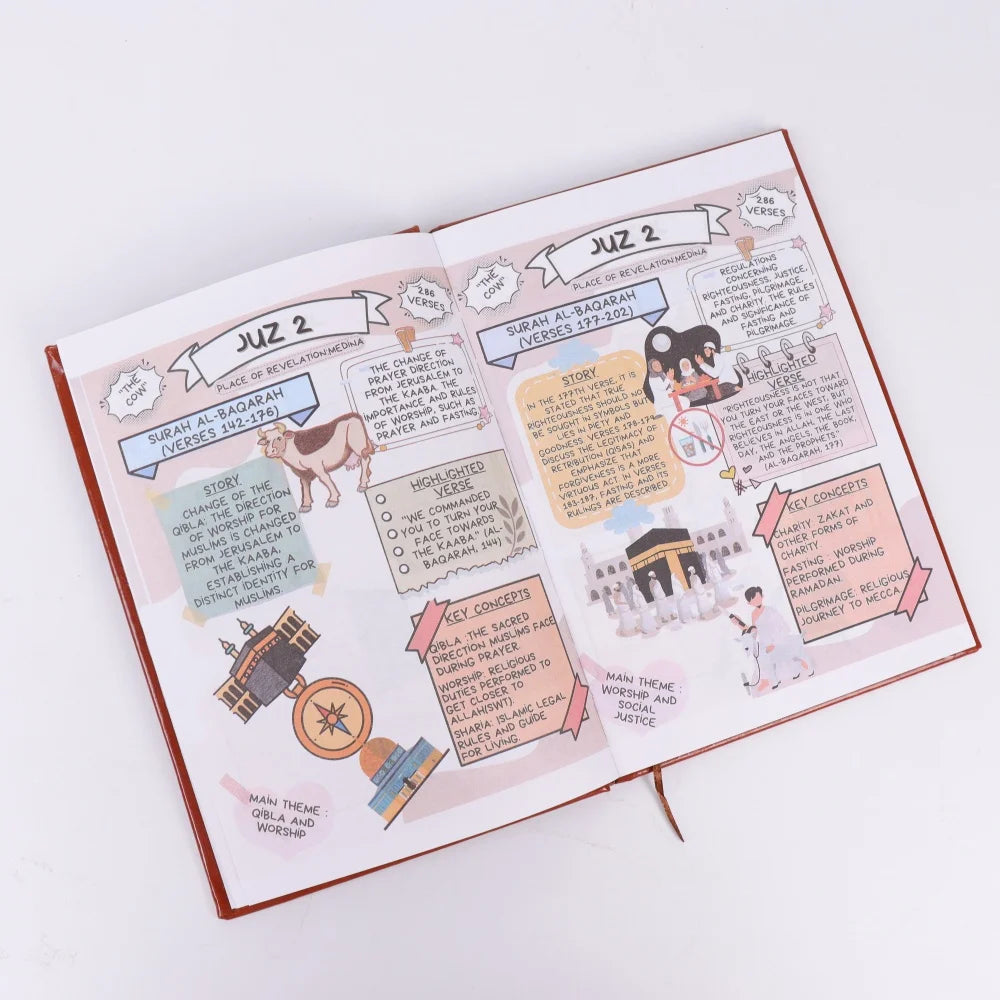 JUZ 2
286
VERSES
"THE
COW"
PLACE OF REVELATION:MEDINA
SURAH AL-BAQARAH
(VERSES 142-176)
THE CHANGE OF
PRAYER DIRECTION
FROM JERUSALEM TO
THE KAABA. THE
IMPORTANCE AND RULES
OF WORSHIP, SUCH AS
PRAYER AND FASTING
STORY
CHANGE OF THE
QIBLA: THE DIRECTION
OF WORSHIP FOR
MUSLIMS IS CHANGED
FROM JERUSALEM TO
THE KAABA,
ESTABLISHING A
DISTINCT IDENTITY FOR
MUSLIMS.
HIGHLIGHTED
VERSE
"WE COMMANDED
YOU TO TURN YOUR
FACE TOWARDS
THE KAABA" (AL-
BAQARAH, 144)
KEY CONCEPTS
QIBLA :THE SACRED
DIRECTION MUSLIMS FACE
DURING PRAYER.
WORSHIP: RELIGIOUS
DUTIES PERFORMED TO
GET CLOSER TO
ALLAH(SWT).
SHARIA: ISLAMIC LEGAL
RULES AND GUIDE
FOR LIVING.
MAIN THEME :
QIBLA AND
WORSHIP
JUZ 2
286
VERSES
"THE
COW"
PLACE OF REVELATION:MEDINA
SURAH AL-BAQARAH
(VERSES 177-202)
REGULATIONS
CONCERNING
RIGHTEOUSNESS, JUSTICE,
FASTING, PILGRIMAGE,
AND CHARITY. THE RULES
AND SIGNIFICANCE OF
FASTING AND
PILGRIMAGE.
STORY
IN THE 177TH VERSE, IT IS
STATED THAT TRUE
RIGHTEOUSNESS SHOULD NOT
BE SOUGHT IN SYMBOLS BUT
LIES IN PIETY AND
GOODNESS. VERSES 178-179
DISCUSS THE LEGITIMACY OF
RETRIBUTION (QISAS) AND
EMPHASIZE THAT
FORGIVENESS IS A MORE
VIRTUOUS ACT. IN VERSES
183-187, FASTING AND ITS
RULINGS ARE DESCRIBED.
HIGHLIGHTED
VERSE
"RIGHTEOUSNESS IS NOT THAT
YOU TURN YOUR FACES TOWARD
THE EAST OR THE WEST, BUT
RIGHTEOUSNESS IS IN ONE WHO
BELIEVES IN ALLAH, THE LAST
DAY, THE ANGELS, THE BOOK,
AND THE PROPHETS"
(AL-BAQARAH, 177)
KEY CONCEPTS
CHARITY: ZAKAT AND
OTHER FORMS OF
CHARITY.
FASTING : WORSHIP
PERFORMED DURING
RAMADAN.
PILGRIMAGE: RELIGIOUS
JOURNEY TO MECCA
MAIN THEME :
WORSHIP AND
SOCIAL
JUSTICE